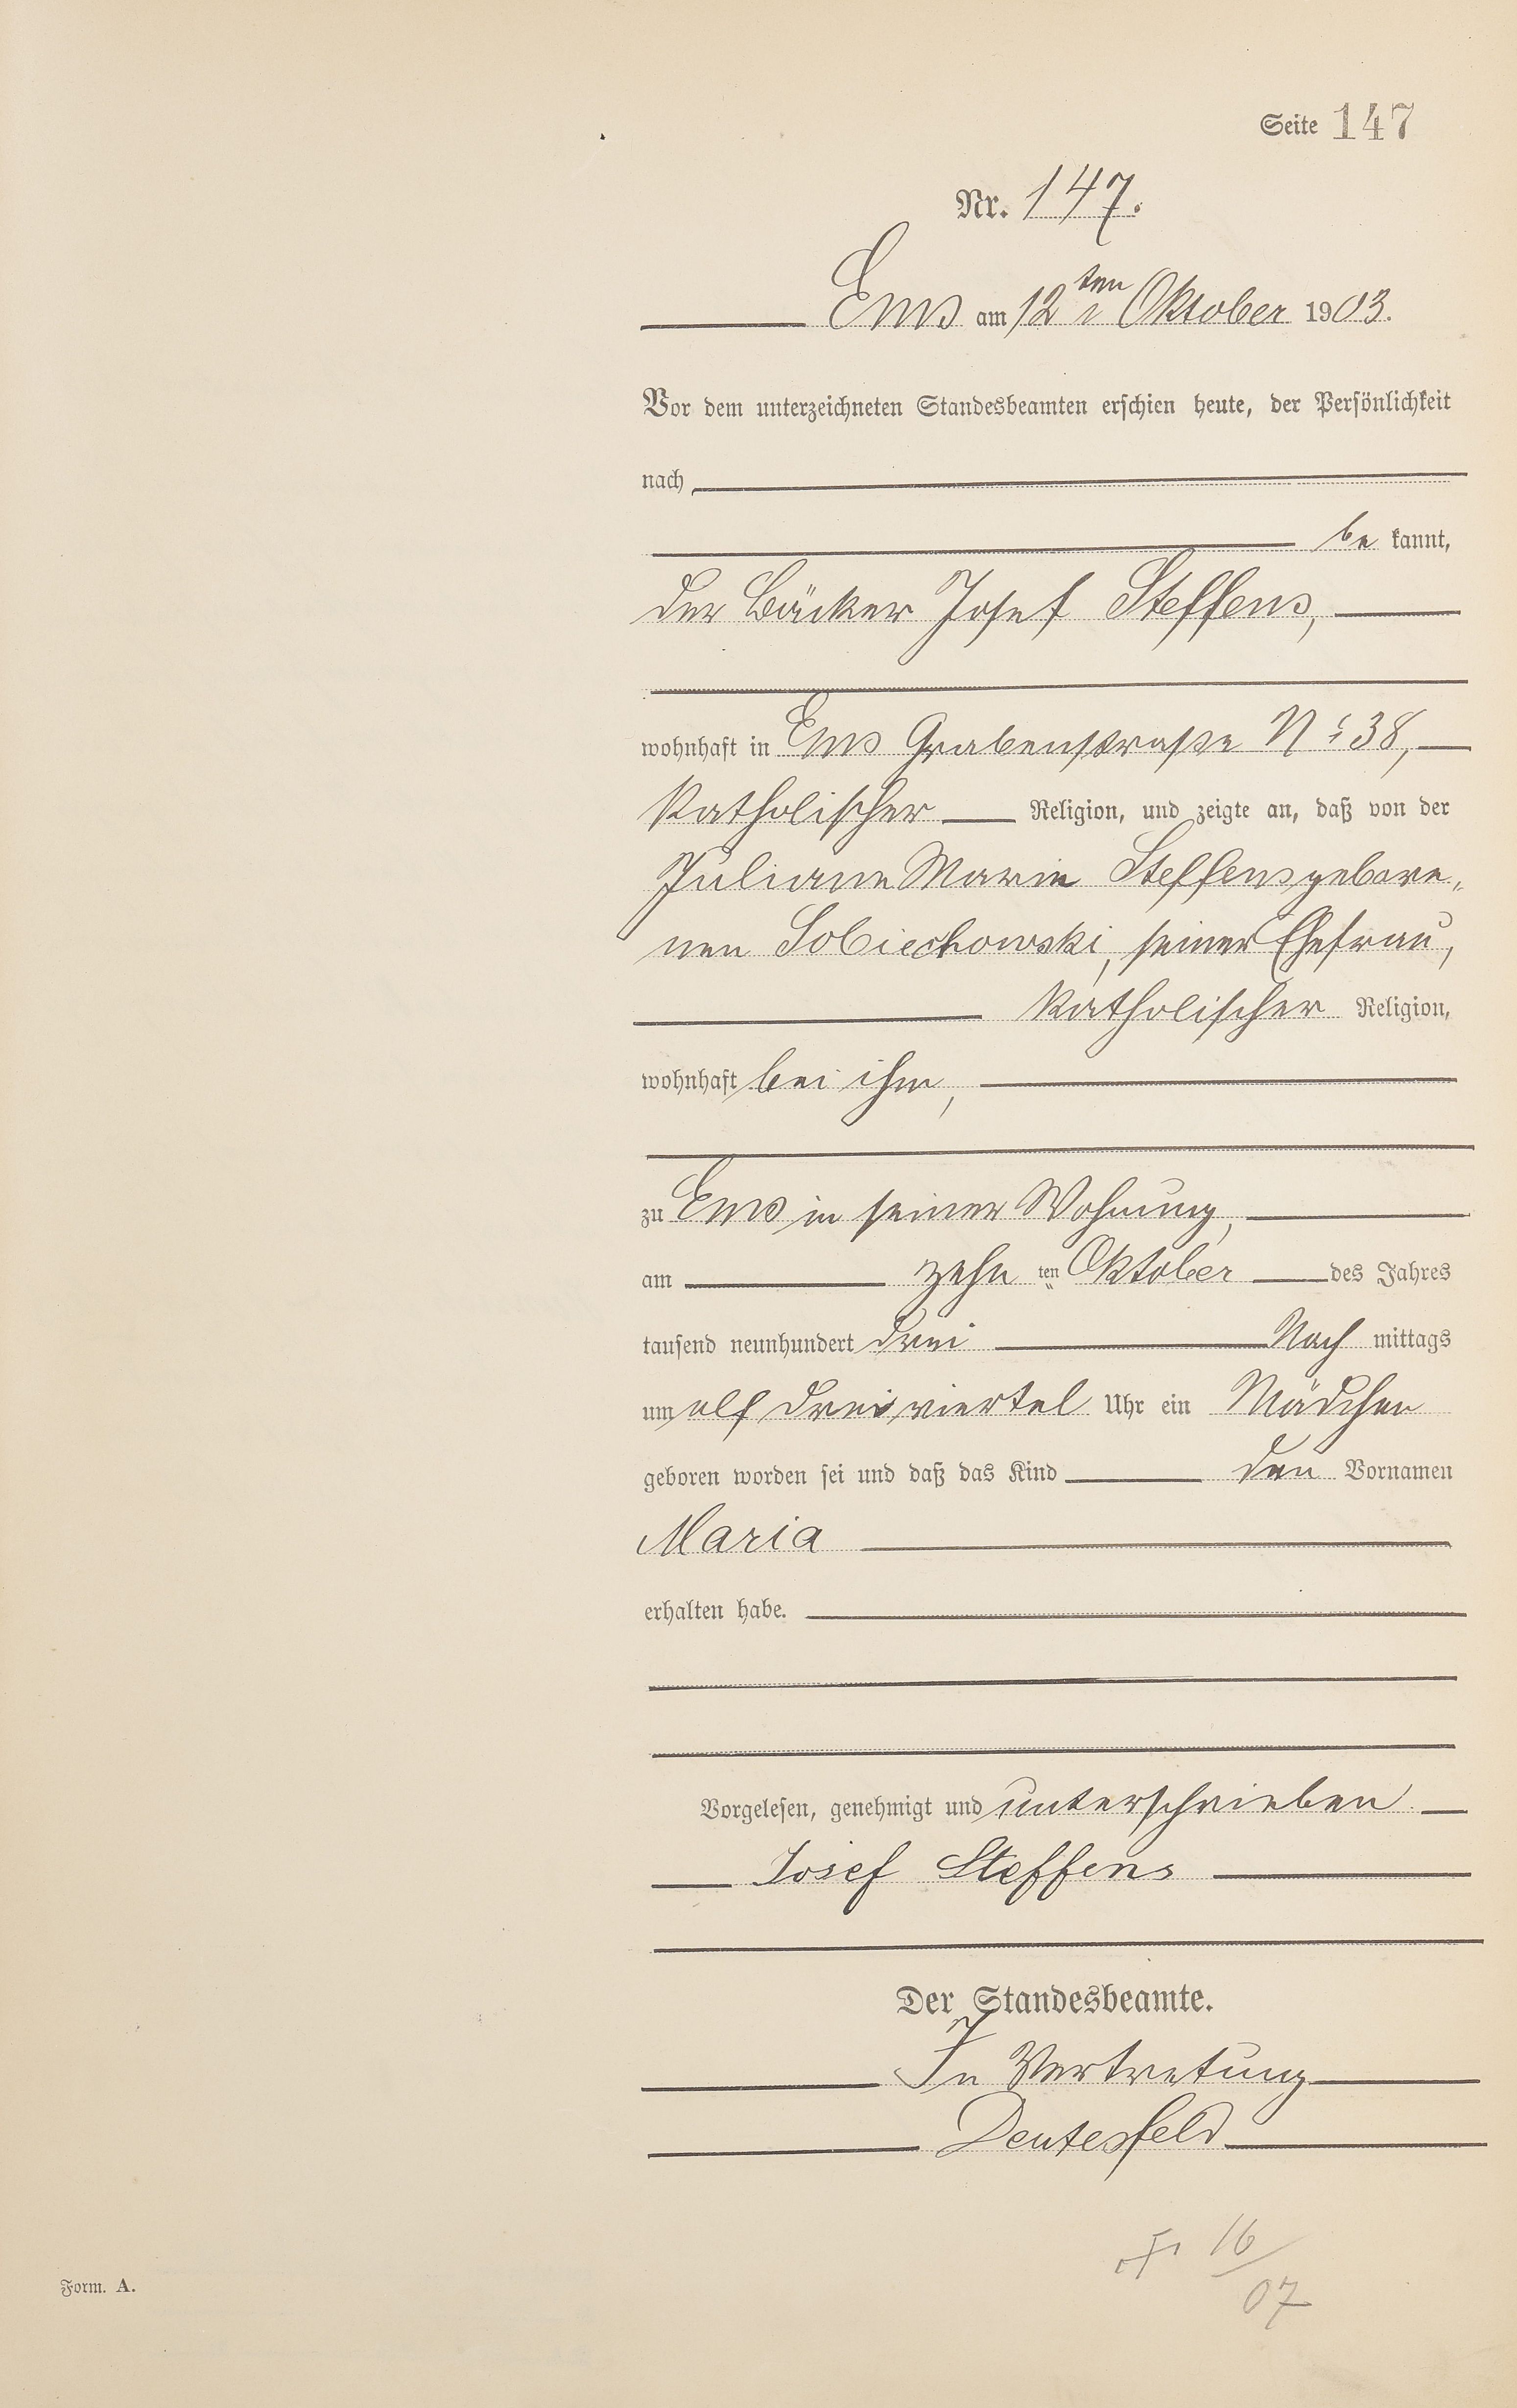 Seite 147
Nr. 147.
Ems am 12ten Oktober 1903.
Vor dem unterzeichneten Standesbeamten erschien heute, der Persönlichkeit
nach
be kannt,
der Bäcker Josef Steffens,
wohnhaft in Ems Grabenstraße No 38,
katholischer Religion, und zeigte an, daß von der
Juliane Marie Steffens gebore„
nen Sobiechowski, seiner Ehefrau,
katholischer Religion,
wohnhaft bei ihm,
zu Ems in seiner Wohnung,
am zehn ten Oktober des Jahres
tausend neunhundert drei Nach mittags
um elf dreiviertel Uhr ein Mädchen
geboren worden sei und daß das Kind den Vornamen
Maria
erhalten habe.
Vorgelesen, genehmigt und unterschrieben
Josef Steffens
Der Standesbeamte.
In Vertretung
Deutesfeld
16/07
Form. A.